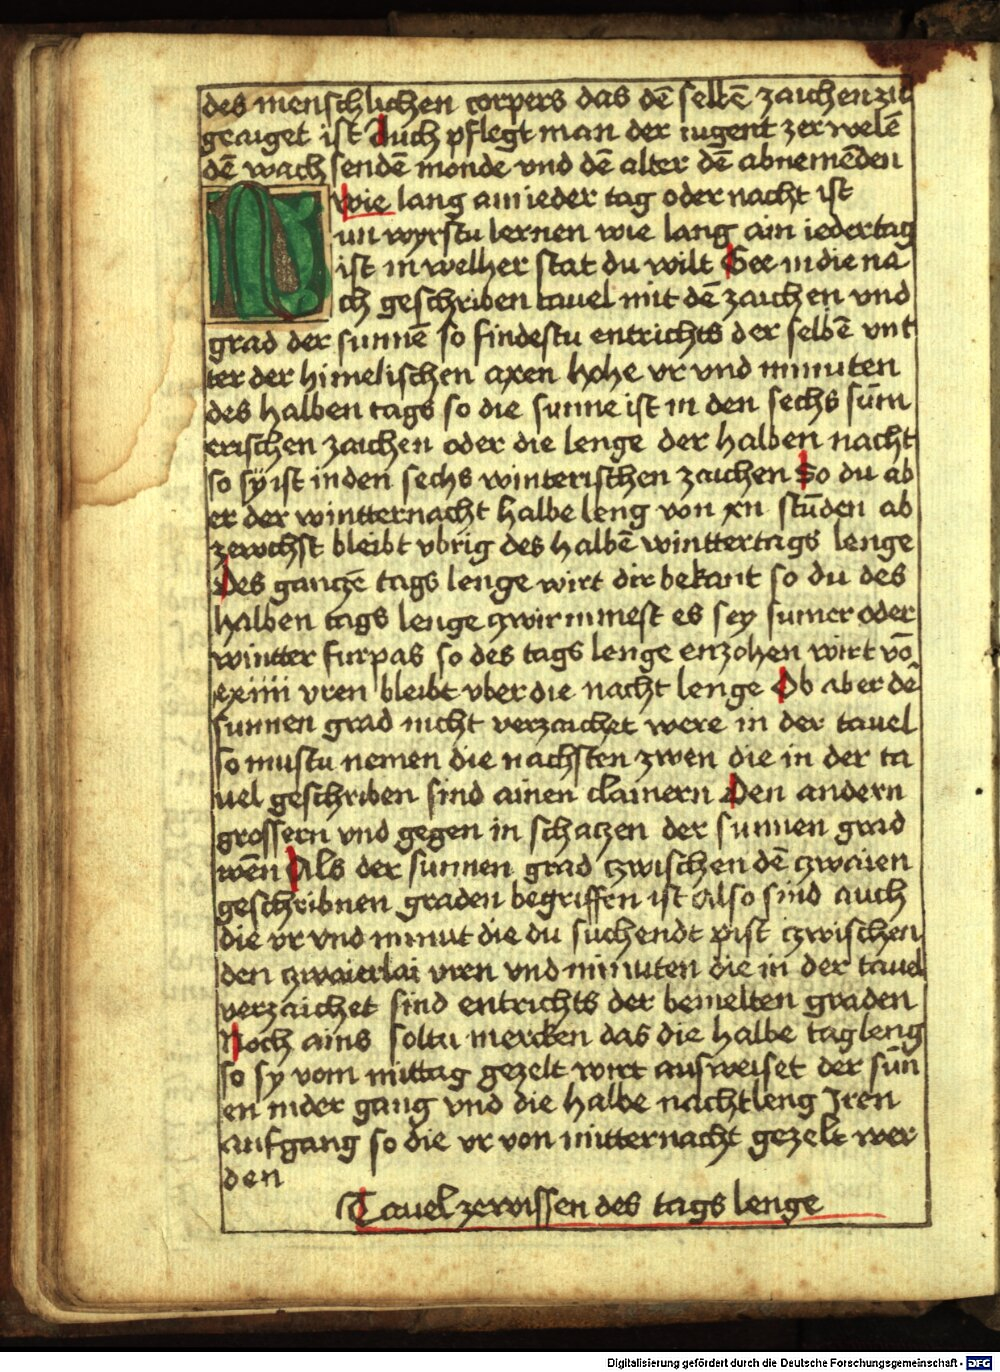 des menschlichen corpers das dē selbē zaichen zu
geaiget ist Auch pflegt man der iugent zerwelē
dē wachsendē monde vnd dē alter dē abnemēden
wie lang ain ieder tag oder nacht ist
Nun wyrstu lernen wie lang ain ieder tag
ist in welher stat du wilt Gee in die nā
ch geschriben tauel mit dē zaichen vnd
grad der sunnē so findestu entrichts der selbē vnt
ter der himelischen axen hohe vr vnd minuten
des halben tags so die sunne ist in den sechs sūm
erischen zaichen oder die lenge der halben nacht
so sÿ ist in den sechs winterischen zaichen So du ab
er der wintternacht halbe leng von xii stūden ab
zeuchst bleibt vbrig des halbē winttertags lenge
Des gantzē tags lenge wirt dir bekant so du des
halben tags lenge zwir nimest es sey sumer oder
wintter furpas so des tags lenge enzohen wirt vō
xxiiii vren bleibt vber die nacht lenge Ob aber dē
sunnen grad nicht verzaichet were in der tauel
so mustu nemen die nachsten zwen die in der ta
uel geschriben sind ainen clainern Den andern
grossern vnd gegen in schatzen der sunnen grad
wēn Als der sunnen grad czwischen dē czwaien
geschribnen graden begriffen ist Also sind auch
die vr vnd minut die du suchendt pist czwischen
den czwaierlai vren vnd minuten die in der tauel
verzaichet sind entrichts der bemelten graden
Noch ains soltu mercken das die halbe tagleng
so sy vom mittag gezelt wirt ausweiset der sūn
en nider gang vnd die halbe nachtleng Iren
aufgang so die vr von mitternacht gezelt wer
den
Tauel zewissen des tags lenge
Digitalisierung gefördert durch die Deutsche Forschungsgemeinschaft - DFG